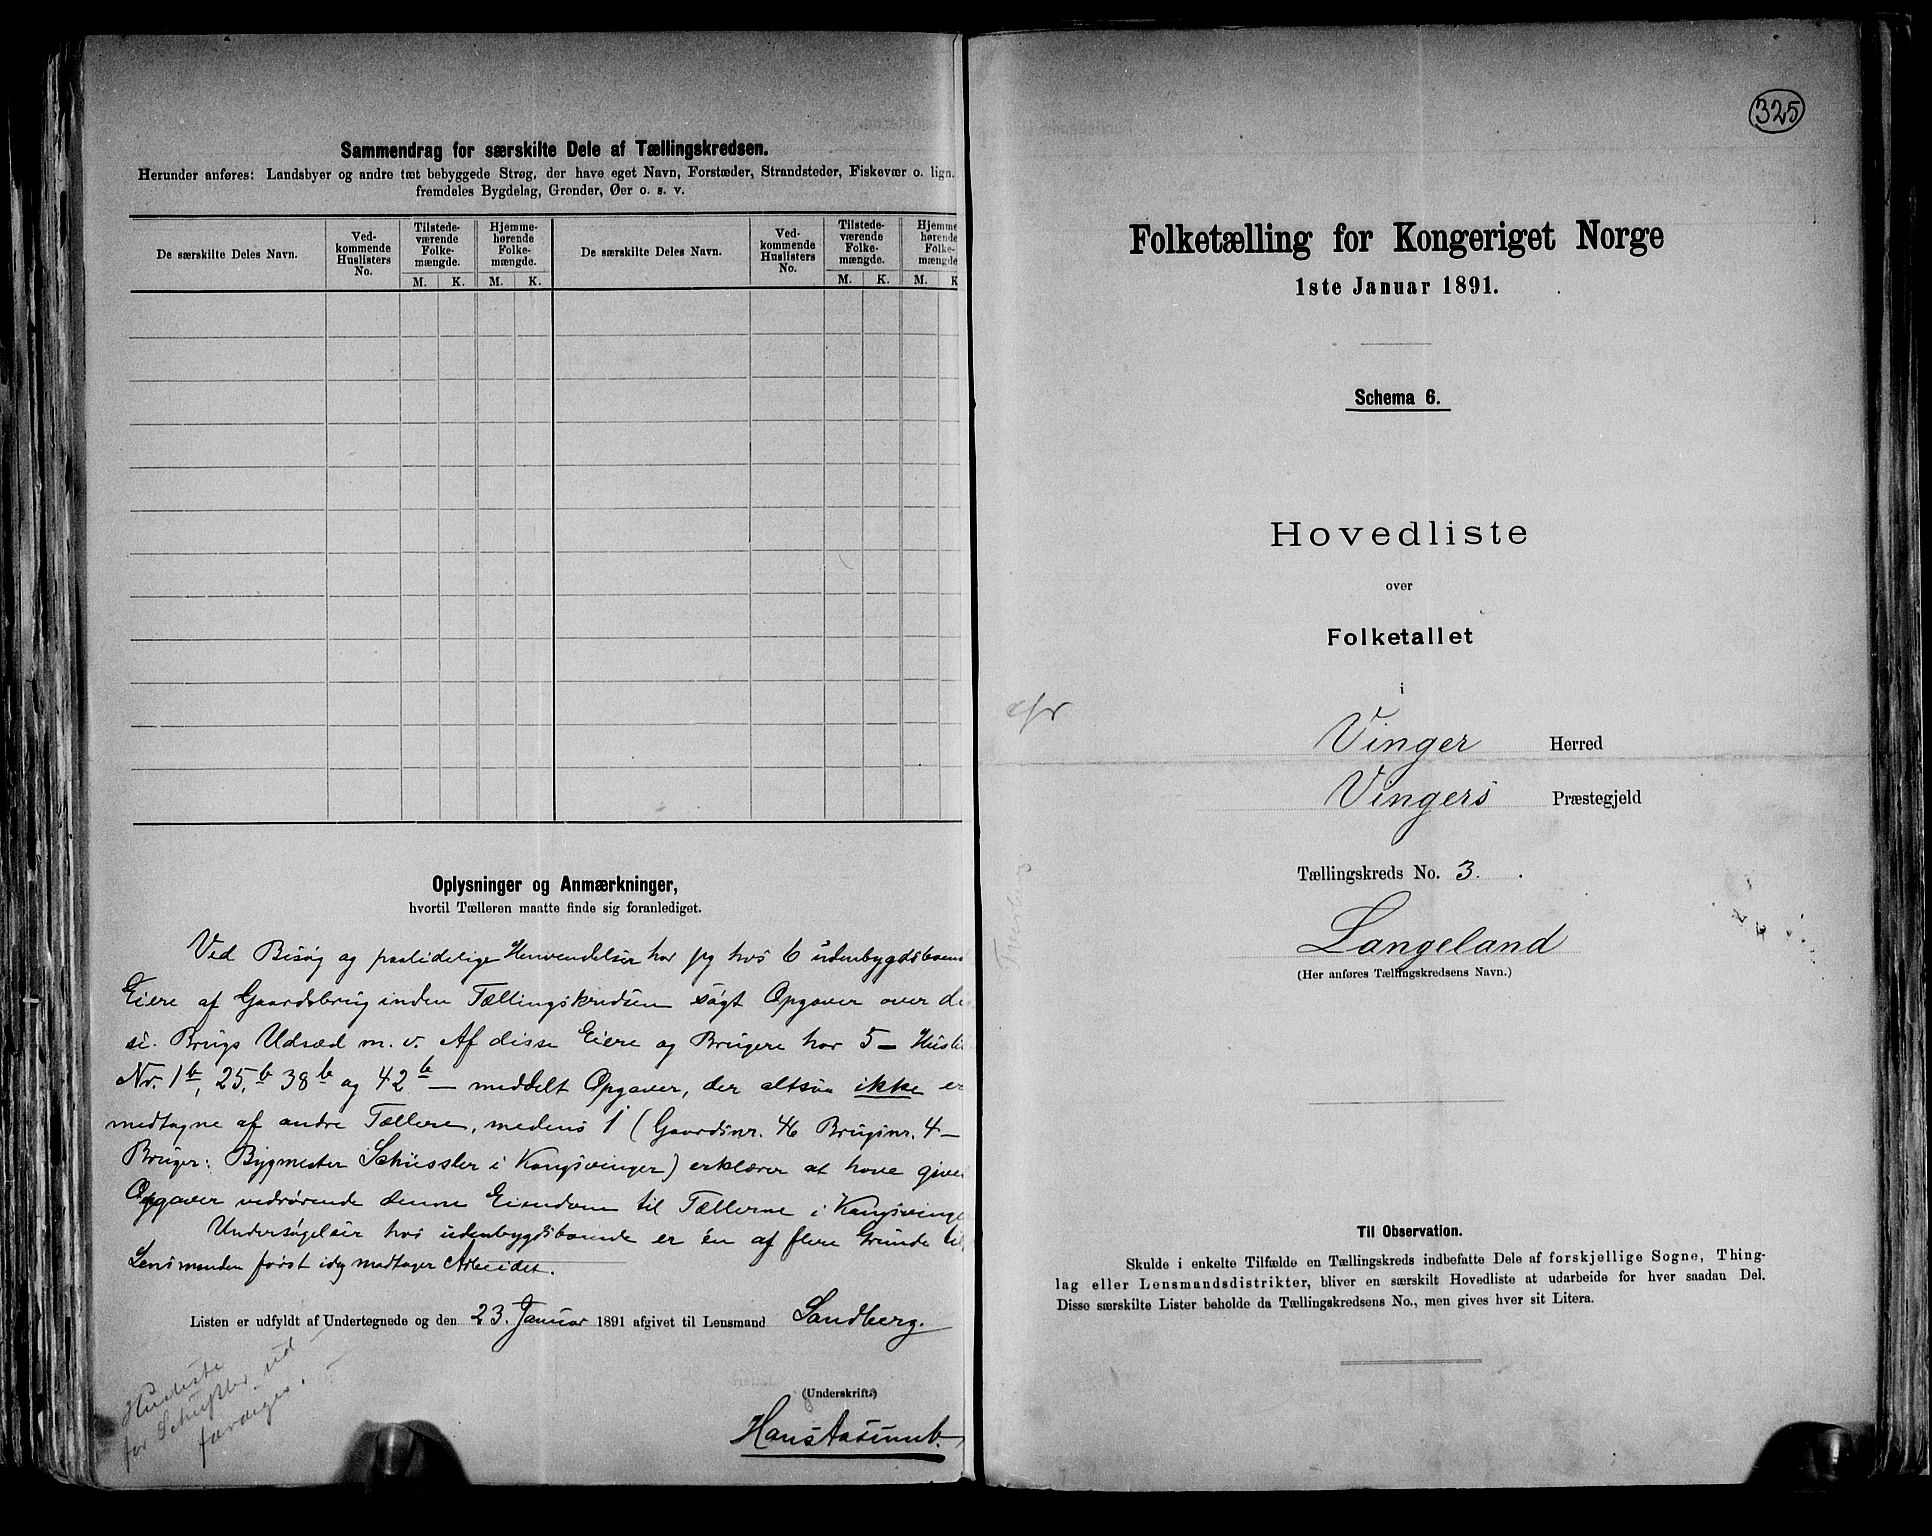 Sammendrag for særskilte Dele af Tællingskredsen.
Herunder anføres: Landsbyer og andre tæt bebyggede Strøg, der have eget Navn, Forstæder, Strandsteder, Fiskevær o. lign.
fremdeles Bygdelag, Grender, Øer o. s. v.
De særskilte Deles Navn.
Ved-
kommende
Huslisters
No.
Tilstede-
værende
Folke-
mængde.
Hjemme-
hørende
Folke-
mængde.
M. K. M. K.
De særskilte Deles Navn.
Ved-
kommende
Huslisters
No.
Tilstede-
værende
Folke-
mængde.
Hjemme
hørende
Folke-
mængde
M. K. M. K
Oplysninger og Anmærkninger,
hvortil Tælleren maatte finde sig foranlediget.
Ved Besøg og paalidelige Henvendelser har jeg hos 6 udenbygdsboend
Eiere af Gaardsbrug inden Tællingskredsen søgt Opgaver over di
se Brugs Udsæd m. v. Af disse Eiere og Brugere har 5 – Husli
Nr. 1b, 25b, 38b og 42b – meddelt Opgaver, der altsaa ikke er
medtagne af andre Tællere, medens 1 (Gaardsnr. 46 Brugsnr. 4 –
Bruger: Bygmester Schüssler i Kongsvinger) erklærer at have givet
Opgaver vedrørende denne Eiendom til Tællerne i Kongsvinge
Undersøgelser hos udenbygdsboende er én af flere Grunde til
Lensmanden først idag modtager Arbeidet.
Listen er udfyldt af Undertegnede og den 23. Januar 1891 afgivet til Lensmand Sandberg.
(Underskrift)
Hans Aasumb.
Husliste
for Schüssler ud
færdiges.
325
Folketælling for Kongeriget Norge
1ste Januar 1891.
Schema 6.
Hovedliste
over
Folketallet
i
cfr
Vinger Herred
Vingers Præstegjeld
Tællingskreds No. 3.
Langeland
(Her anføres Tællingskredsens Navn.)
Til Observation.
Skulde i enkelte Tilfælde en Tællingskreds indbefatte Dele af forskjellige Sogne, Thing-
lag eller Lensmandsdistrikter, bliver en særskilt Hovedliste at udarbeide for hver saadan Del.
Disse særskilte Lister beholde da Tællingskredsens No., men gives hver sit Litera.